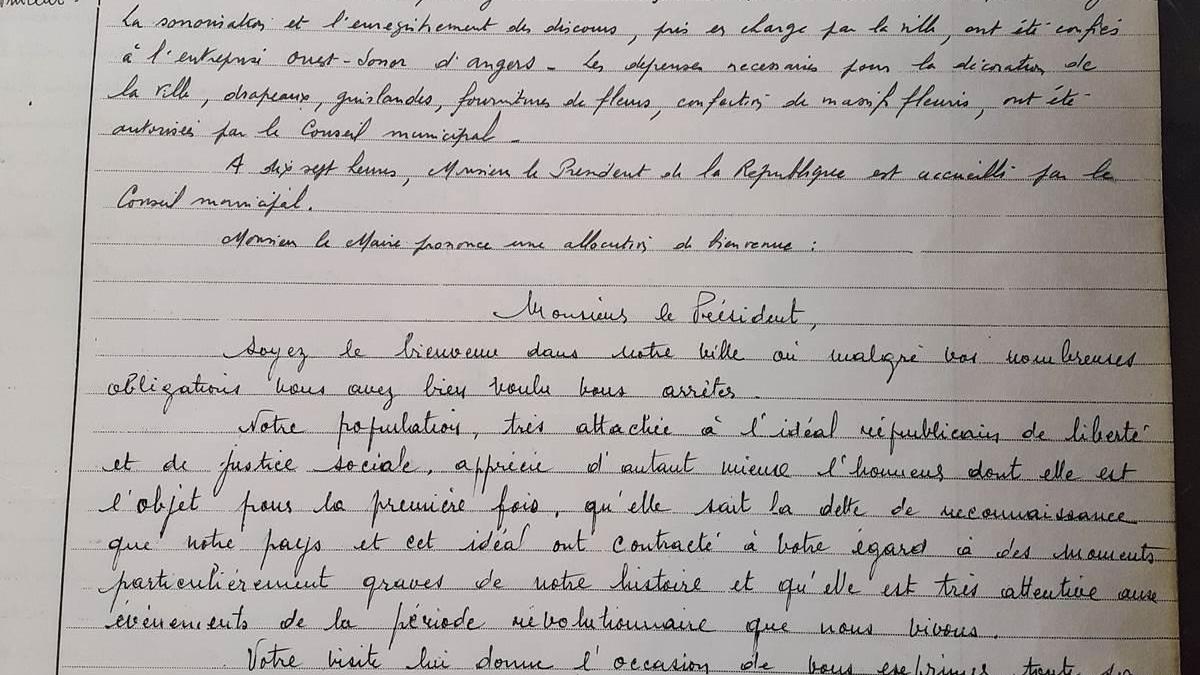 La sonorisation et l'enregistrement des discours, pris en charge par la ville, ont été confiés
à l'entreprise Ouest-Sonor d'Angers - Les dépenses necessaires pour la décoration de
la ville, drapeaux, guirlandes, fournitures de fleurs, confection de massifs fleuris, ont été
autorisées par le Conseil municipal -
A dix sept heures, Monsieur le Président de la République est accueilli par le
Conseil municipal.
Monsieur le Maire prononce une allocution de bienvenue :
Monsieur le Président,
Soyez le bienvenu dans notre ville où malgré vos nombreuses
obligations vous avez bien voulu vous arrêter.
Notre population, très attachée à l'idéal républicain de liberté
et de justice sociale, apprécie d'autant mieux l'honneur dont elle est
l'objet pour la première fois, qu'elle sait la dette de reconnaissance
que notre pays et cet idéal ont contracté à votre égard à des moments
particulièrement graves de notre histoire et qu'elle est très attentive aux
événements de la période révolutionnaire que nous vivons.
Votre visite lui donne l'occasion de vous exprimer toute sa